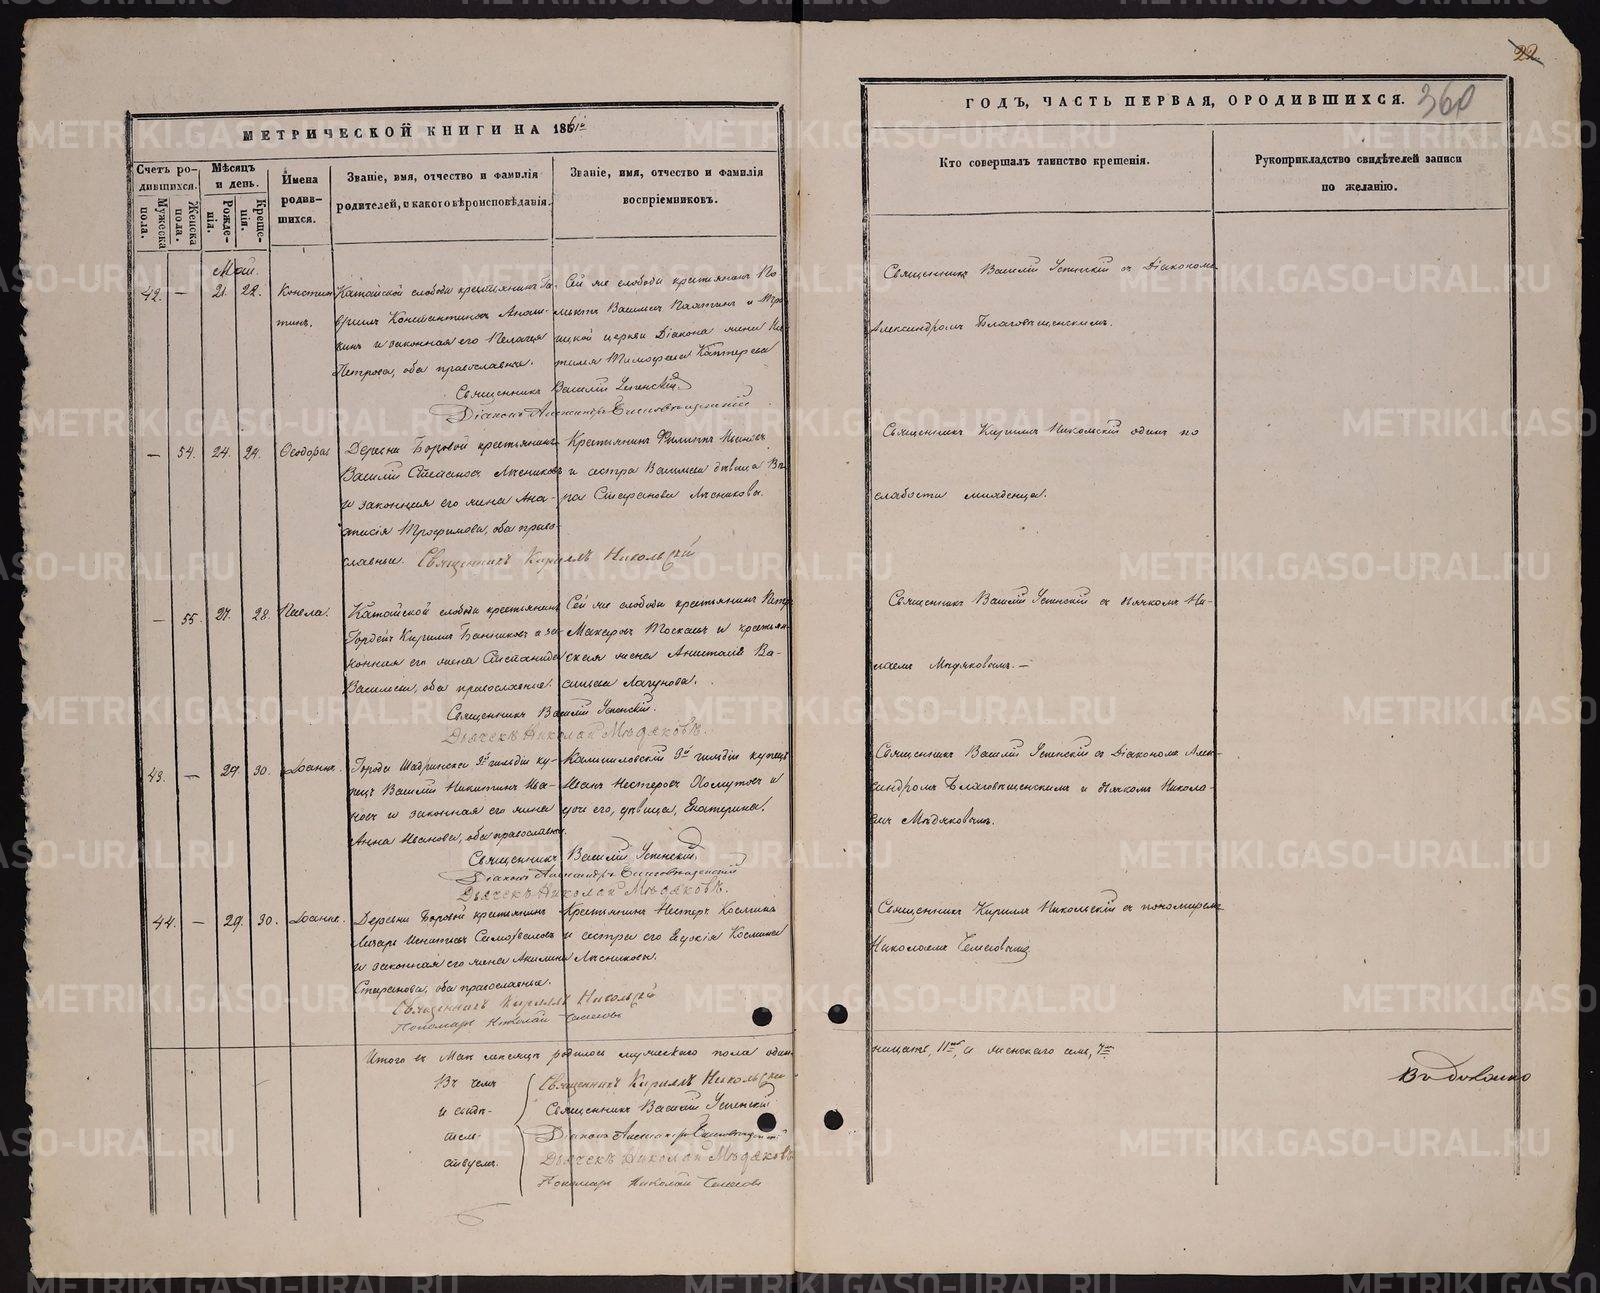 22
360
МЕТРИЧЕСКОЙ КНИГИ НА 1861й
ГОДЪ, ЧАСТЬ ПЕРВАЯ, О РОДИВШИХСЯ.
Счетъ родившихся.
Мужеска пола.
Женска пола.
Мѣсяцъ и день.
Рожденія.
Крещенія.
Имена родившихся.
Званіе, имя, отчество и фамилія
родителей, и какого вѣроисповѣданія.
Званіе, имя, отчество и фамилія
воспріемниковъ.
Кто совершалъ таинство крещенія.
Рукоприкладство свидѣтелей записи
по желанію.
Май.
42. — 21. 22. Константинъ.
Катайской слободы крестьянинъ Гавріилъ Константиновъ
и законная его Пелагея
Петрова, оба православные.
Сей же слободы крестьянинъ
Василій
церкви Діакона жена
Тимофеева
Священникъ Василій Успенскій съ Діакономъ
Александромъ Благовѣщенскимъ.
Священникъ Василій Успенскій
Діаконъ Александръ Благовѣщенскій
— 54. 24. 24. Ѳеодора
Деревни Боровой крестьянинъ
Василій Стефановъ Лѣсниковъ
и законная его жена Ана-
стасія Трофимова, оба право-
славные.
Крестьянинъ Филиппъ Ивановъ
и сестра Василія дѣвица Вѣ-
ра Стефанова Лѣсникова.
Священникъ Кириллъ Никольскій одинъ по
слабости младенца.
Священникъ Кириллъ Никольскій
— 55. 27. 28. Ѳекла.
Катайской слободы крестьянинъ
Гордей Кирилловъ Банниковъ и за-
конная его жена Степанида
Васильева, оба православные.
Сей же слободы крестьянинъ Петръ
Макаровъ и крестьян-
ская жена Васильева
Священникъ Василій Успенскій съ дьячкомъ Ни-
колаемъ Мѣдяковымъ. —
Священникъ Василій Успенскій.
Дьячекъ Николай Мѣдяковъ.
43. — 29. 30. Іоаннъ.
Города Шадринска 3й гильдіи ку-
пецъ Василій Никитинъ Ива-
новъ и законная его жена
Анна Иванова, оба православные.
Камышловскій 3й гильдіи купецъ
Иванъ Нестеровъ и
дочь его, дѣвица, Екатерина.
Священникъ Василій Успенскій съ Діакономъ Алек-
сандромъ Благовѣщенскимъ и дьячкомъ Никола-
емъ Мѣдяковымъ.
Священникъ Василій Успенскій.
Діаконъ Александръ Благовѣщенскій
Дьячекъ Николай Мѣдяковъ.
44. — 29. 30. Іоаннъ.
Деревни Боровой крестьянинъ
Лазарь Игнатьевъ
и законная его жена Акилина
Стефанова, оба православные.
Крестьянинъ Нестеръ Косминъ
и сестра его Евдокія Космина
Лѣсниковы.
Священникъ Кириллъ Никольскій съ пономаремъ
Николаемъ
Священникъ Кириллъ Никольскій
Пономарь Николай
Итого въ Маѣ мѣсяцѣ родилось мужескаго пола один-
надцать, 11ть, а женскаго семь, 7мь
Въ чемъ
и свидѣ-
тель-
ствуемъ.
Священникъ Кириллъ Никольскій
Священникъ Василій Успенскій
Діаконъ Александръ Благовѣщенскій
Дьячекъ Николай Мѣдяковъ
Пономарь Николай
METRIKI.GASO-URAL.RU